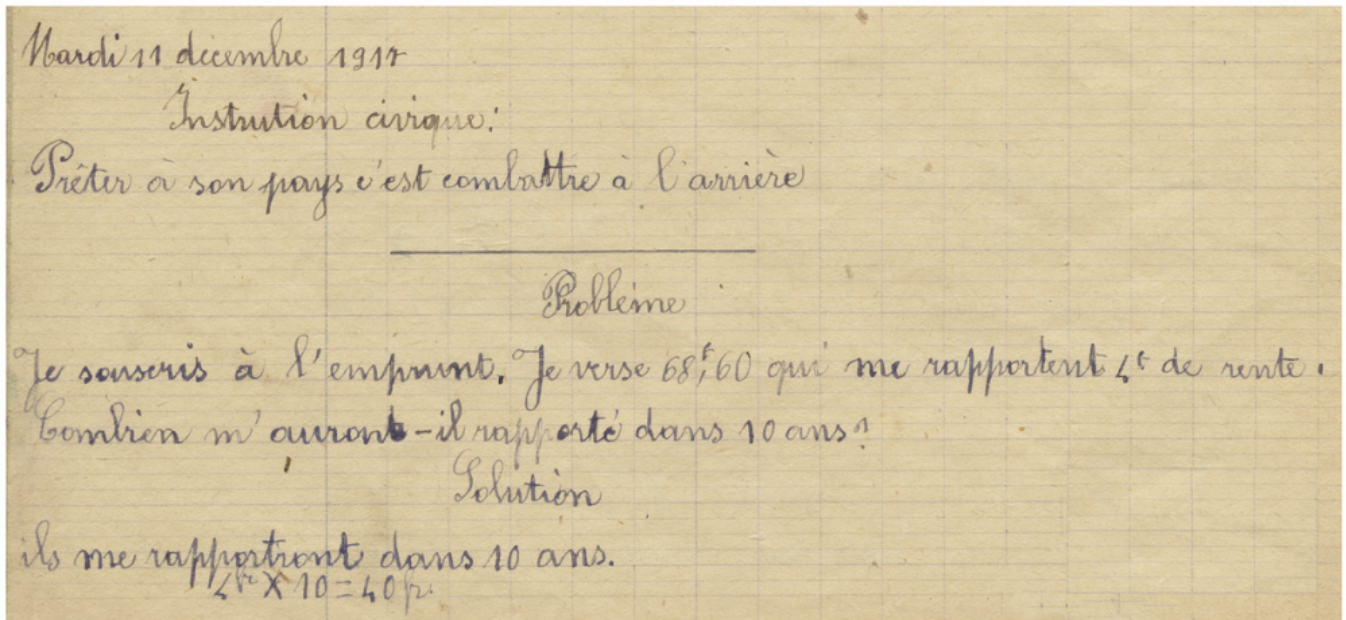 Mardi 11 décembre 1917
Instrution civique:
Prêter à son pays c'est combattre à l'arrière
Problème
Je souscris à l'emprunt. Je verse 68f,60 qui me rapportent 4f de rente.
Combien m'auront-il rapporté dans 10 ans?
Solution
ils me rapportront dans 10 ans.
4fr X 10 = 40fr.